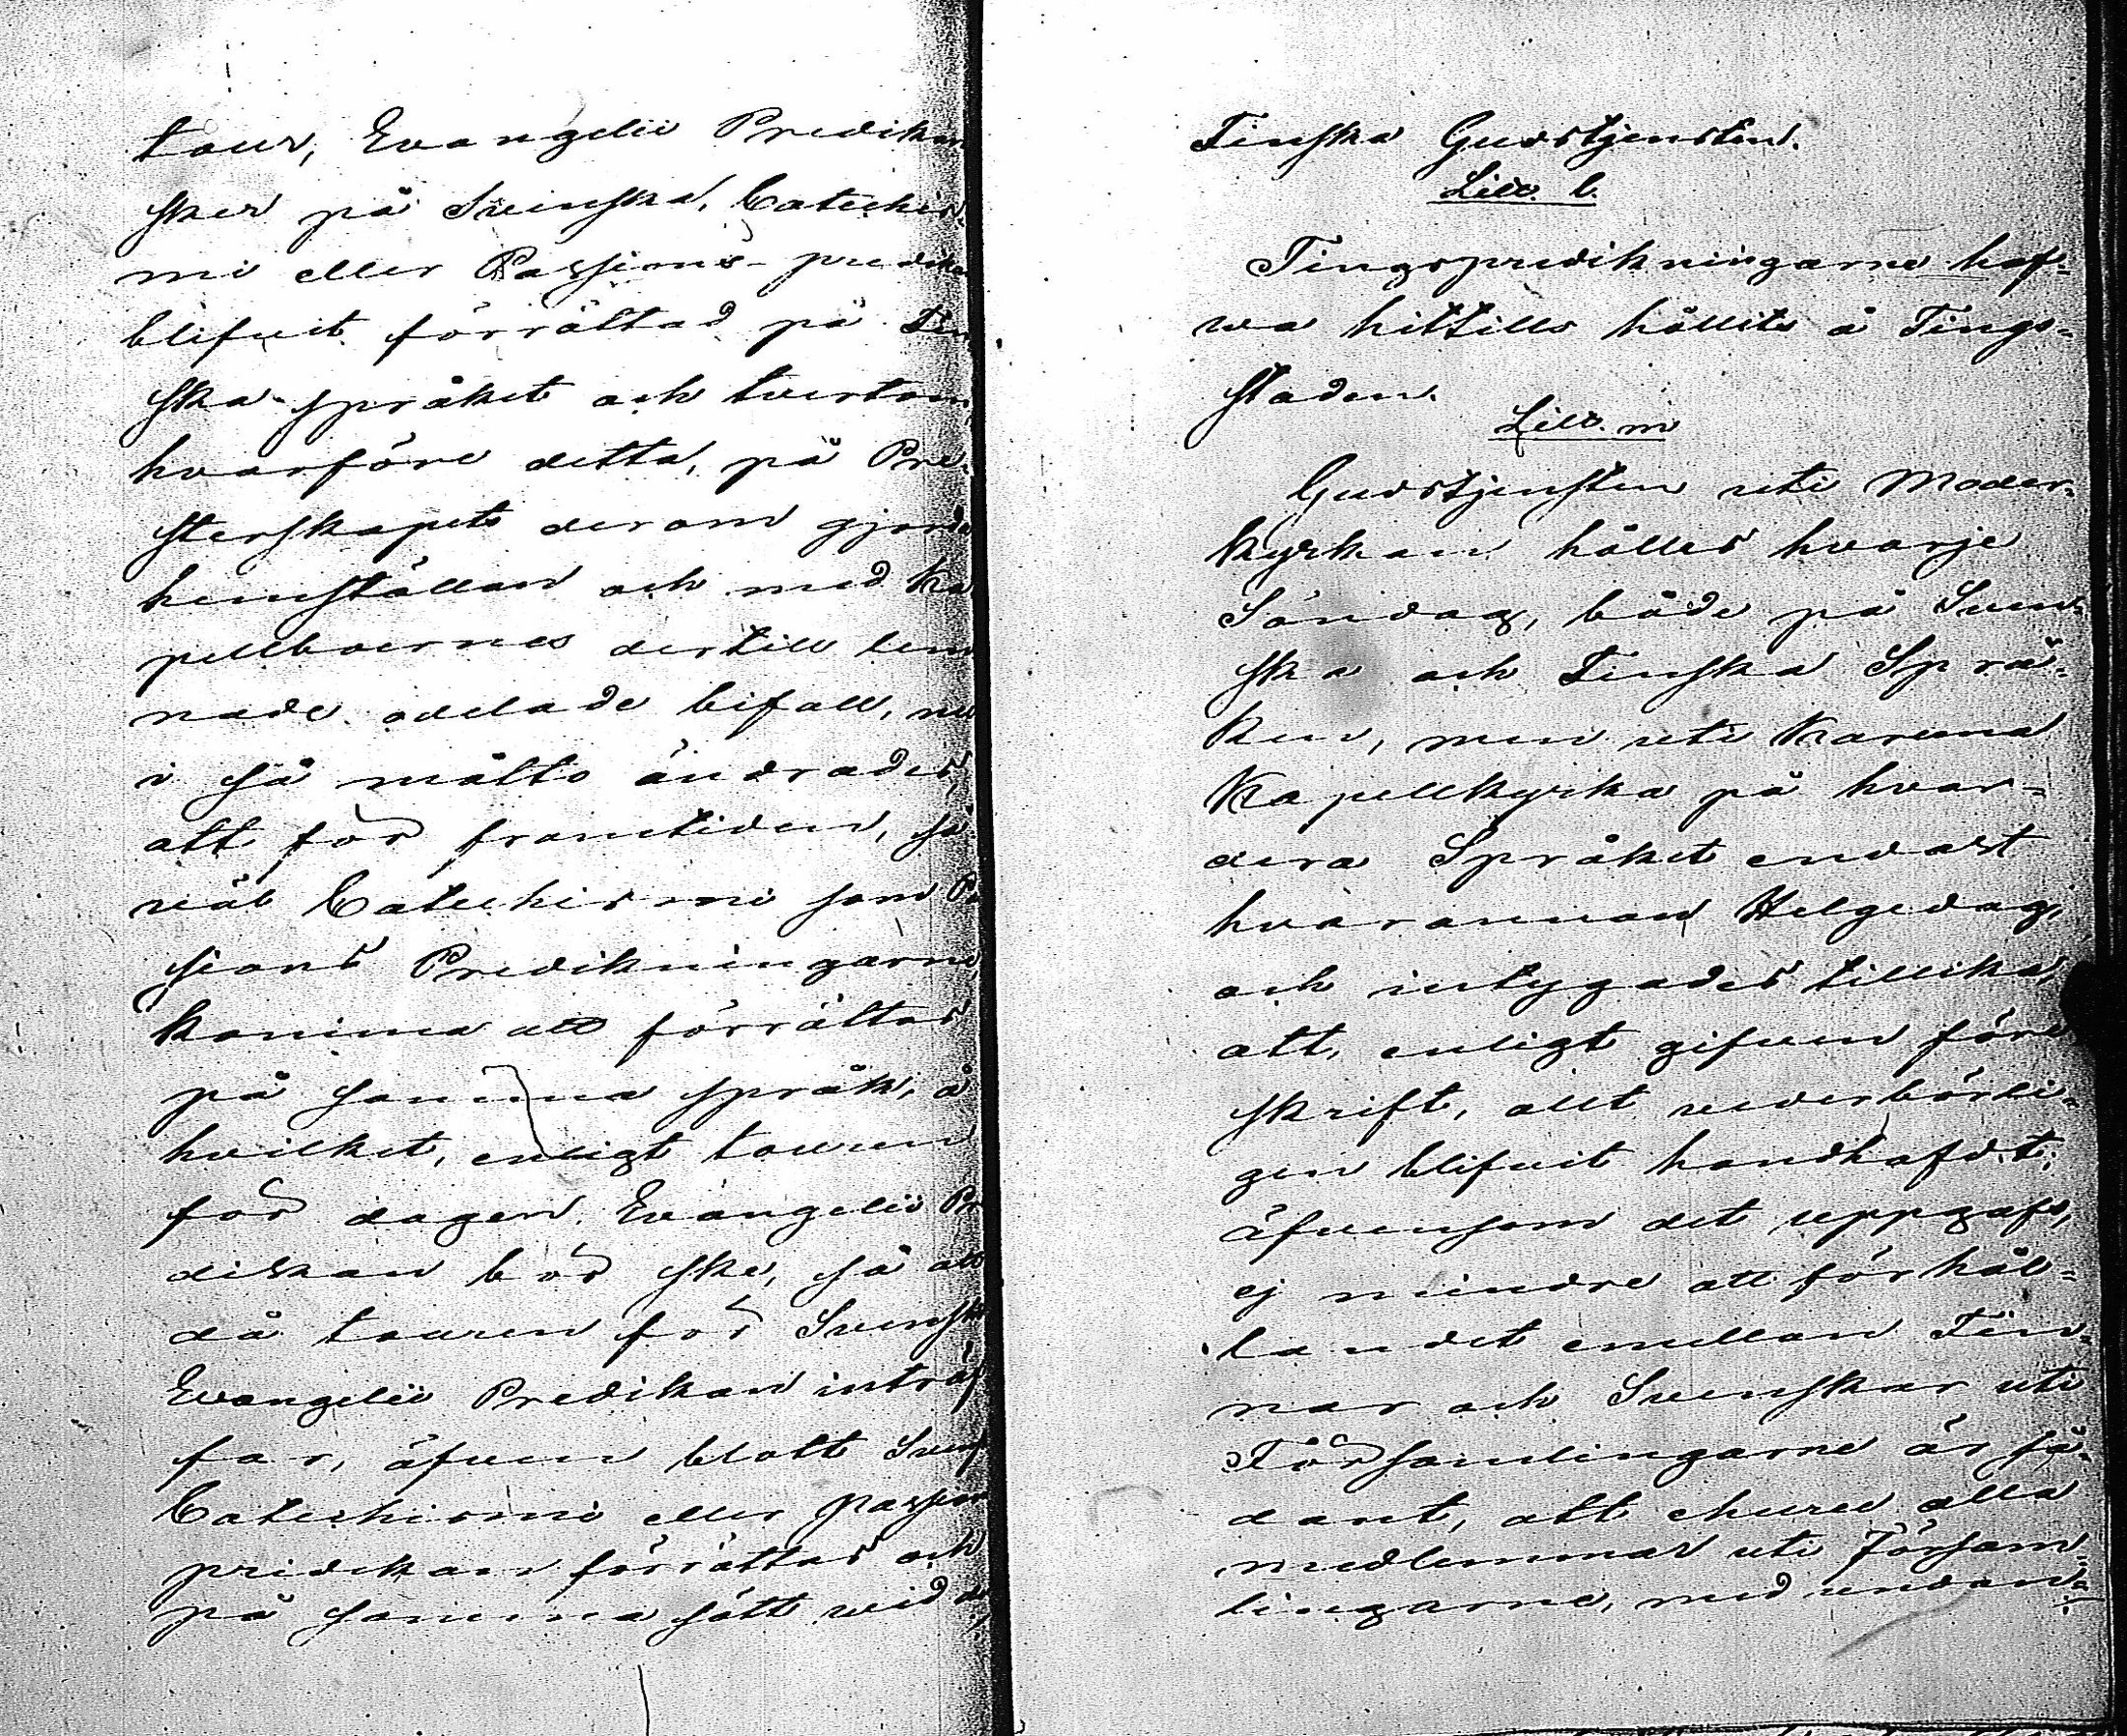 tour, Evangelii Predikan
sker på Svenska, Catechis-
mi eller Passions-predika
blifvit förrättad på Fin
ska språket och tvertom
hvarföre detta, på Pre-
sterskapets derom gjorde
hemställan och med Ka
pellboernes dertill lem
nade odelade bifall, nu
i så måtto ändrades,
att för framtiden, så
väl Catechismi som Pa
sions Predikningarne,
komma att förrättas
på samma språk, å
hvilket, enligt touren
för dagen, Evangelii Pre
dikan bör ske, så att
då touren för Svensk
Evangelii Predikan inträf
far, äfven blott Svensk
Catechismi eller Passions
predikan förrättas och
på samma sätt vid
Finska Gudstjensten.
Litt. l.
Tingspredikningarne haf-
va hittills hållits å Tings-
staden.
Litt. m
Gudstjensten uti Moder-
kyrkan hålles hvarje
Söndag, både på Sven-
ska och Finska Språ-
ken, men uti Karuna
Kapellkyrka på hvar-
dera Språket endast
hvarannan Helgedag,
och intygades tillika,
att, enligt gifven före
skrift, allt vederbörli-
gen blifvit handhafdt;
äfvensom det uppgafs,
ej mindre att förhål-
landet emellan Fin-
nar och Svenskar uti
Församlingarne är så-
dant, att ehuru alla
medlemmar uti Försam-
lingarne, med undan-